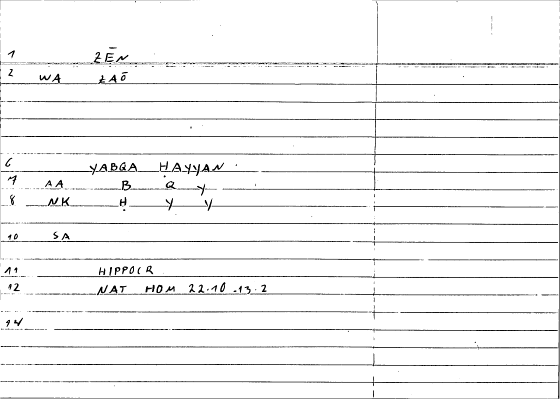 1 ZĒN
2 WA ŁAŌ
6 YABQA ḤAYYAN
7 AA B Q Y
8 NK Ḥ Y Y
10 SA
11 HIPPOCR
12 NAT HOM 22.10 .13.2
14